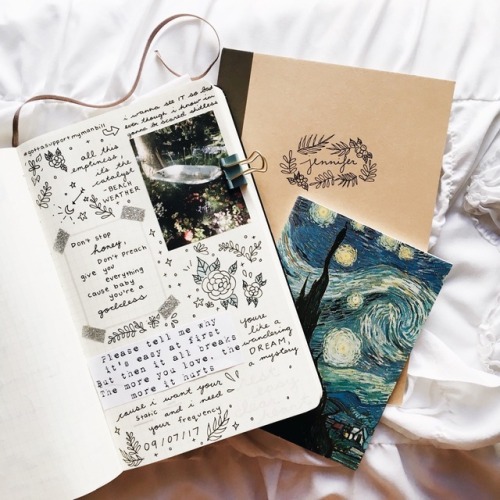 i wanna see IT so bad
even though i know im
gonna be scared shitless
#gottasupportmymanbill
all this
emptiness,
its the
catalyst
-BEACH
WEATHER
Don't stop
honey,
Don't preach
give you
everything
cause baby
you're a
goddess
Please tell me why
it's easy at first,
But then it all breaks
The more you love, the
more it hurts
youre
like a
wandering
DREAM,
a mystery
cause i want your
static and i need
your frequency
09/07/17
jennifer